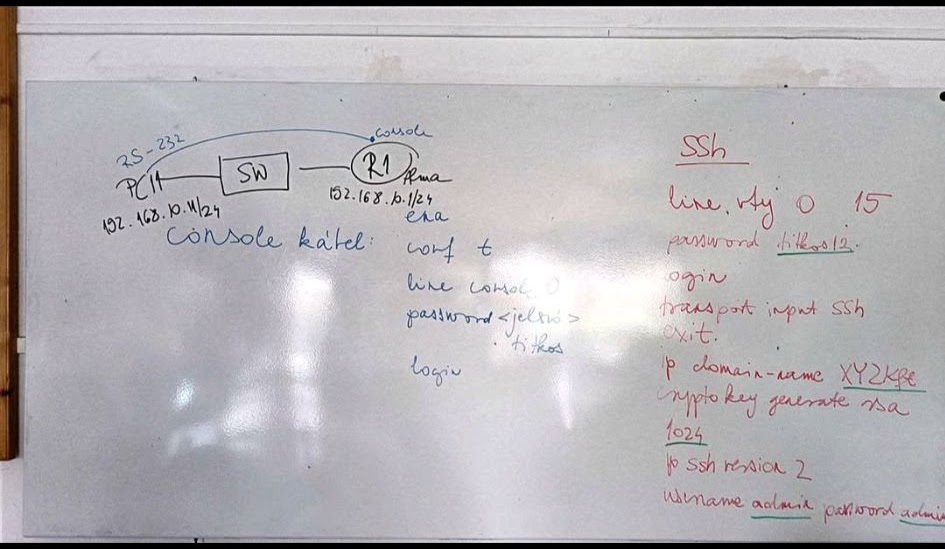 RS-232
console
PC11
SW
R1
Alma
192.168.10.11/24
192.168.10.1/24
Console kábel:
ena
conf t
line console 0
password <jelszó>
titkos
login
SSh
line vty 0 15
password titkos12.
login
transport input SSh
exit.
ip domain-name XYZKft
crypto key generate rsa
1024
ip ssh version 2
username admin password admin